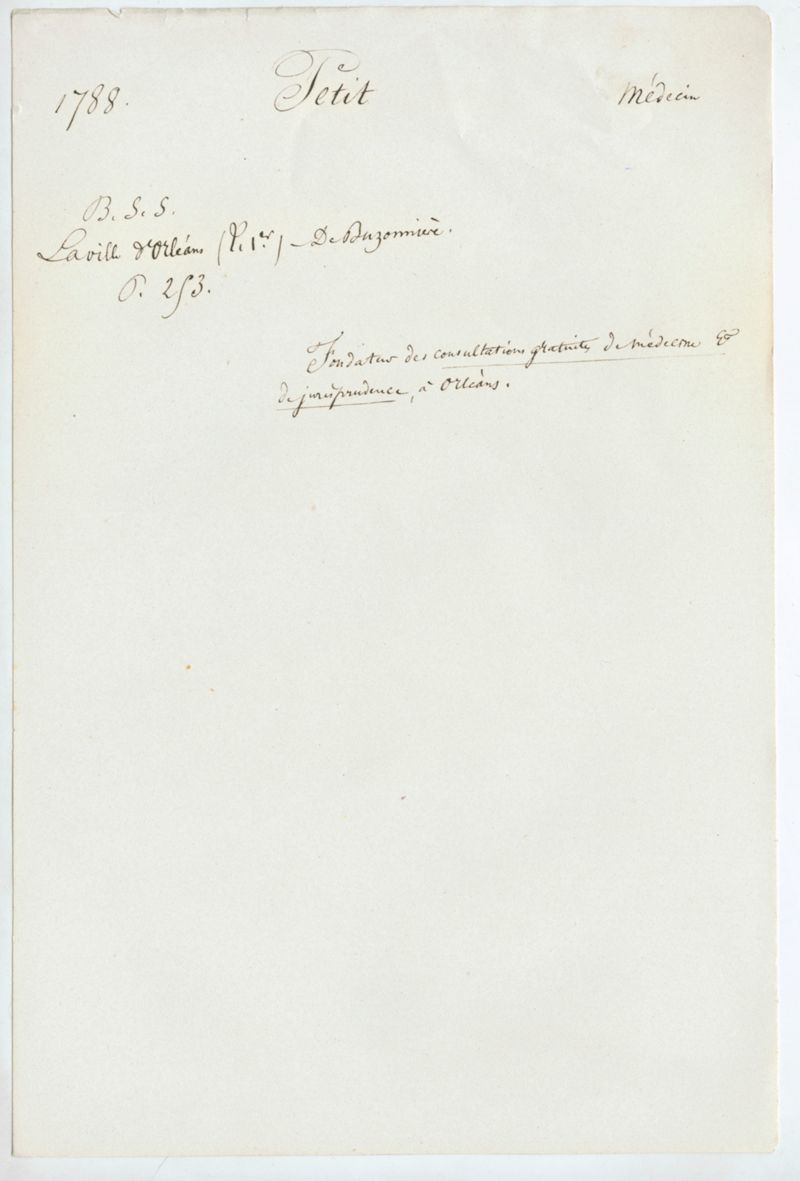 1788. Petit Médecin
B. S. S.
La ville d'Orléans (P. 1er) – De Buzonnière.
P. 253.
Fondateur des consultations gratuites de médecine &
de jurisprudence, à Orléans.